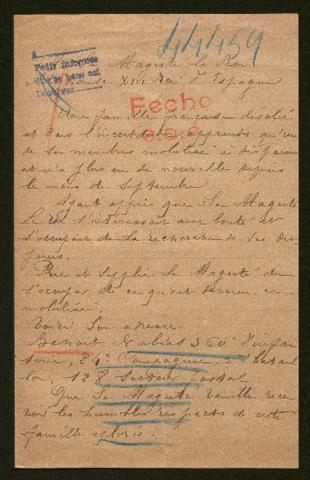 44459
Petit informes
Fecho
Majesté le Roi
XIII Roi d'Espagne
Une famille française désolée
et dans l'incertitude apprends qu'un
de son membres mobilisé à disparu
et n'a plus eu de nouvelle depuis
le mois de Septembre
Ayant appris que Sa Majesté
le Roi s'interessait avec bonté et
s'occuper de la recherche de ses dis
parus.
Prie et supplie Sa Majesté de
s'occuper de ce qu'est devenu ce
mobilisé.
Voici son adresse
Benoit 360e d'infan
terie, 24e Compagnie, 5e batail
lon, 128 Secteur postal
Que Sa Majesté veuille rece
voir les humbles respects de cette
famille éplorée.